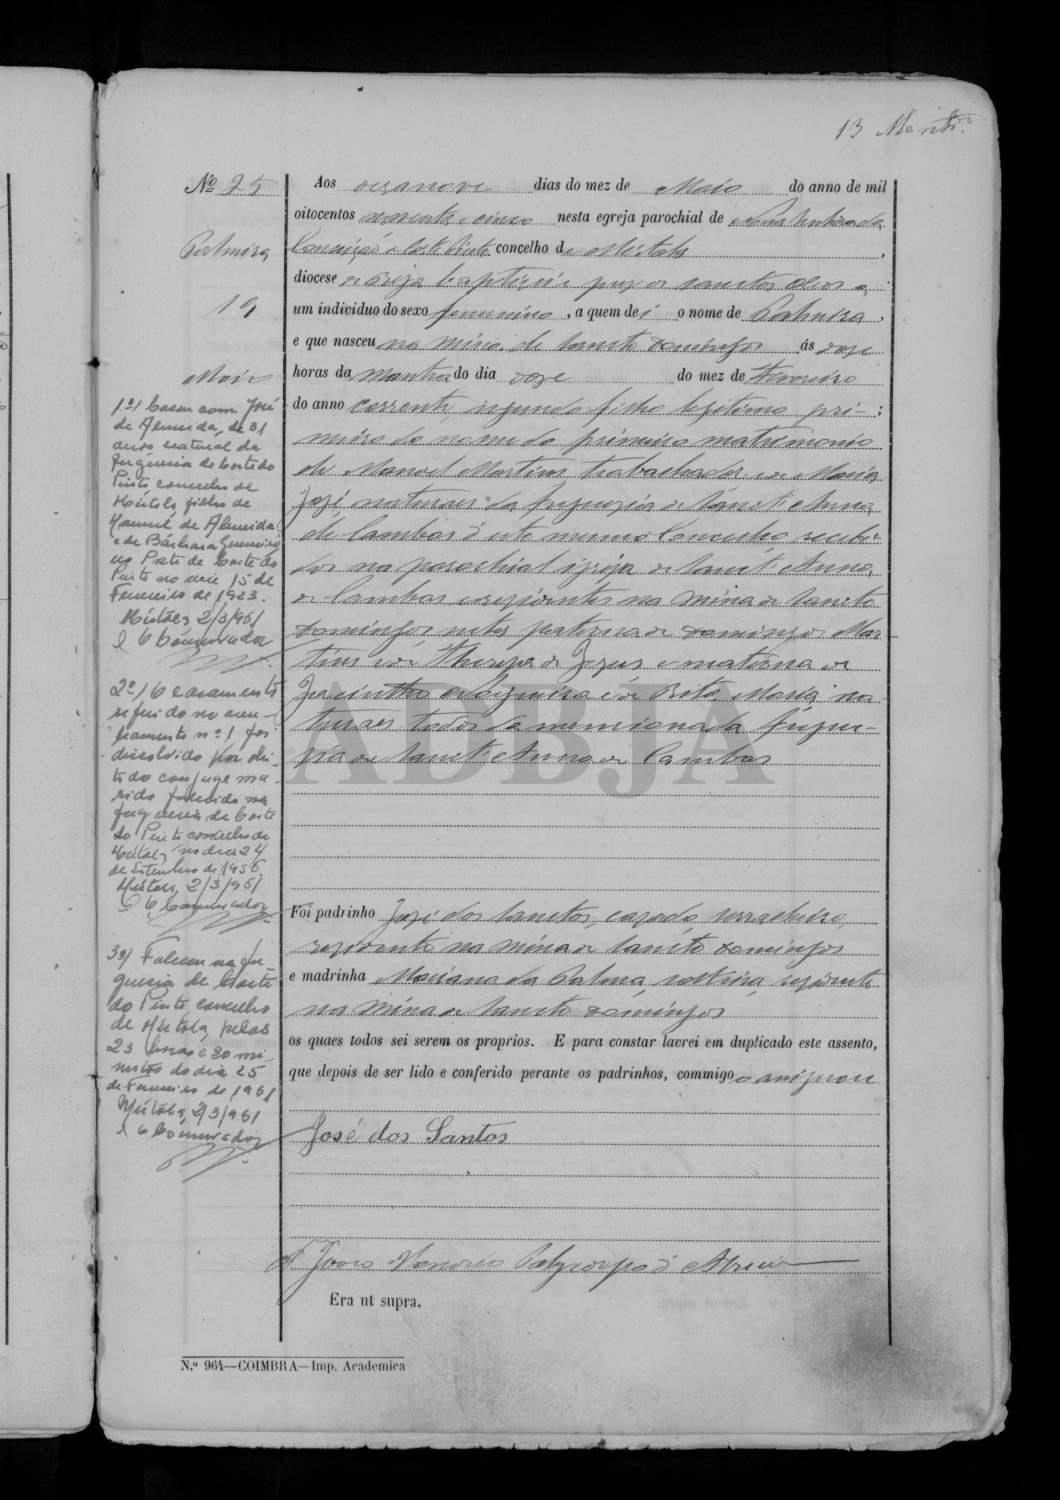 13
Nº 25
Palmira
19
Maio
Aos dezanove dias do mez de Maio do anno de mil
oitocentos noventa e cinco nesta egreja parochial de Nossa Senhora da
Conceição e Corte Pinto concelho de Mertola,
diocese de Beja baptizei e puz os sanctos oleos a
um individuo do sexo femenino, a quem dei o nome de Palmira,
e que nasceu na mina de Sancto Domingos ás doze
horas da manha do dia doze do mez de Fevereiro
do anno corrente, segundo filho legitimo, pri-
meiro do nome do primeiro matrimonio
de Manoel Martins trabalhador e de Maria
José, naturaes da freguezia de Sanct'Anna
de Cambas d'este mesmo Concelho, recebi-
dos na parochial igreja de Sanct'Anna
de Cambas e residentes na mina de Sancto
Domingos, neta paterna de Domingos Mar-
tins e de Thereza de Jezus e materna de
Jacintho e de Rita Maria, na-
turaes todos da mencionada fregue-
zia de Sanct'Anna de Cambas
Foi padrinho José dos Sanctos, casado,
residente na mina de Sancto Domingos
e madrinha Marianna da Palma, solteira, residente
na mina de Sancto Domingos
os quaes todos sei serem os proprios. E para constar lavrei em duplicado este assento,
que depois de ser lido e conferido perante os padrinhos, commigo o assignou
José dos Santos
Era ut supra.
N.º 964—COIMBRA—Imp. Academica
1º) Casou com José
de Almeida, de 31
anos natural da
freguesia de Corte do
Pinto concelho de
Mértola, filho de
Manuel de Almeida
e de Bárbara Guerreiro
no Posto de Corte do
Pinto no dia 15 de
Fevereiro de 1923.
Mértola, 2/3/961
O Conservador
2º) O casamento
referido no aver-
bamento nº 1 foi
dissolvido por óbi-
to do conjuge ma-
rido falecido na
freguesia de Corte
do Pinto concelho de
Mértola, no dia 24
de Setembro de 1956
Mértola, 2/3/961
O Conservador
3º) Faleceu na fre-
guesia de Corte
do Pinto, concelho
de Mértola, pelas
23 horas e 30 mi-
nutos do dia 25
de Fevereiro de 1961
Mértola, 2/3/961
O Conservador
ADBJA